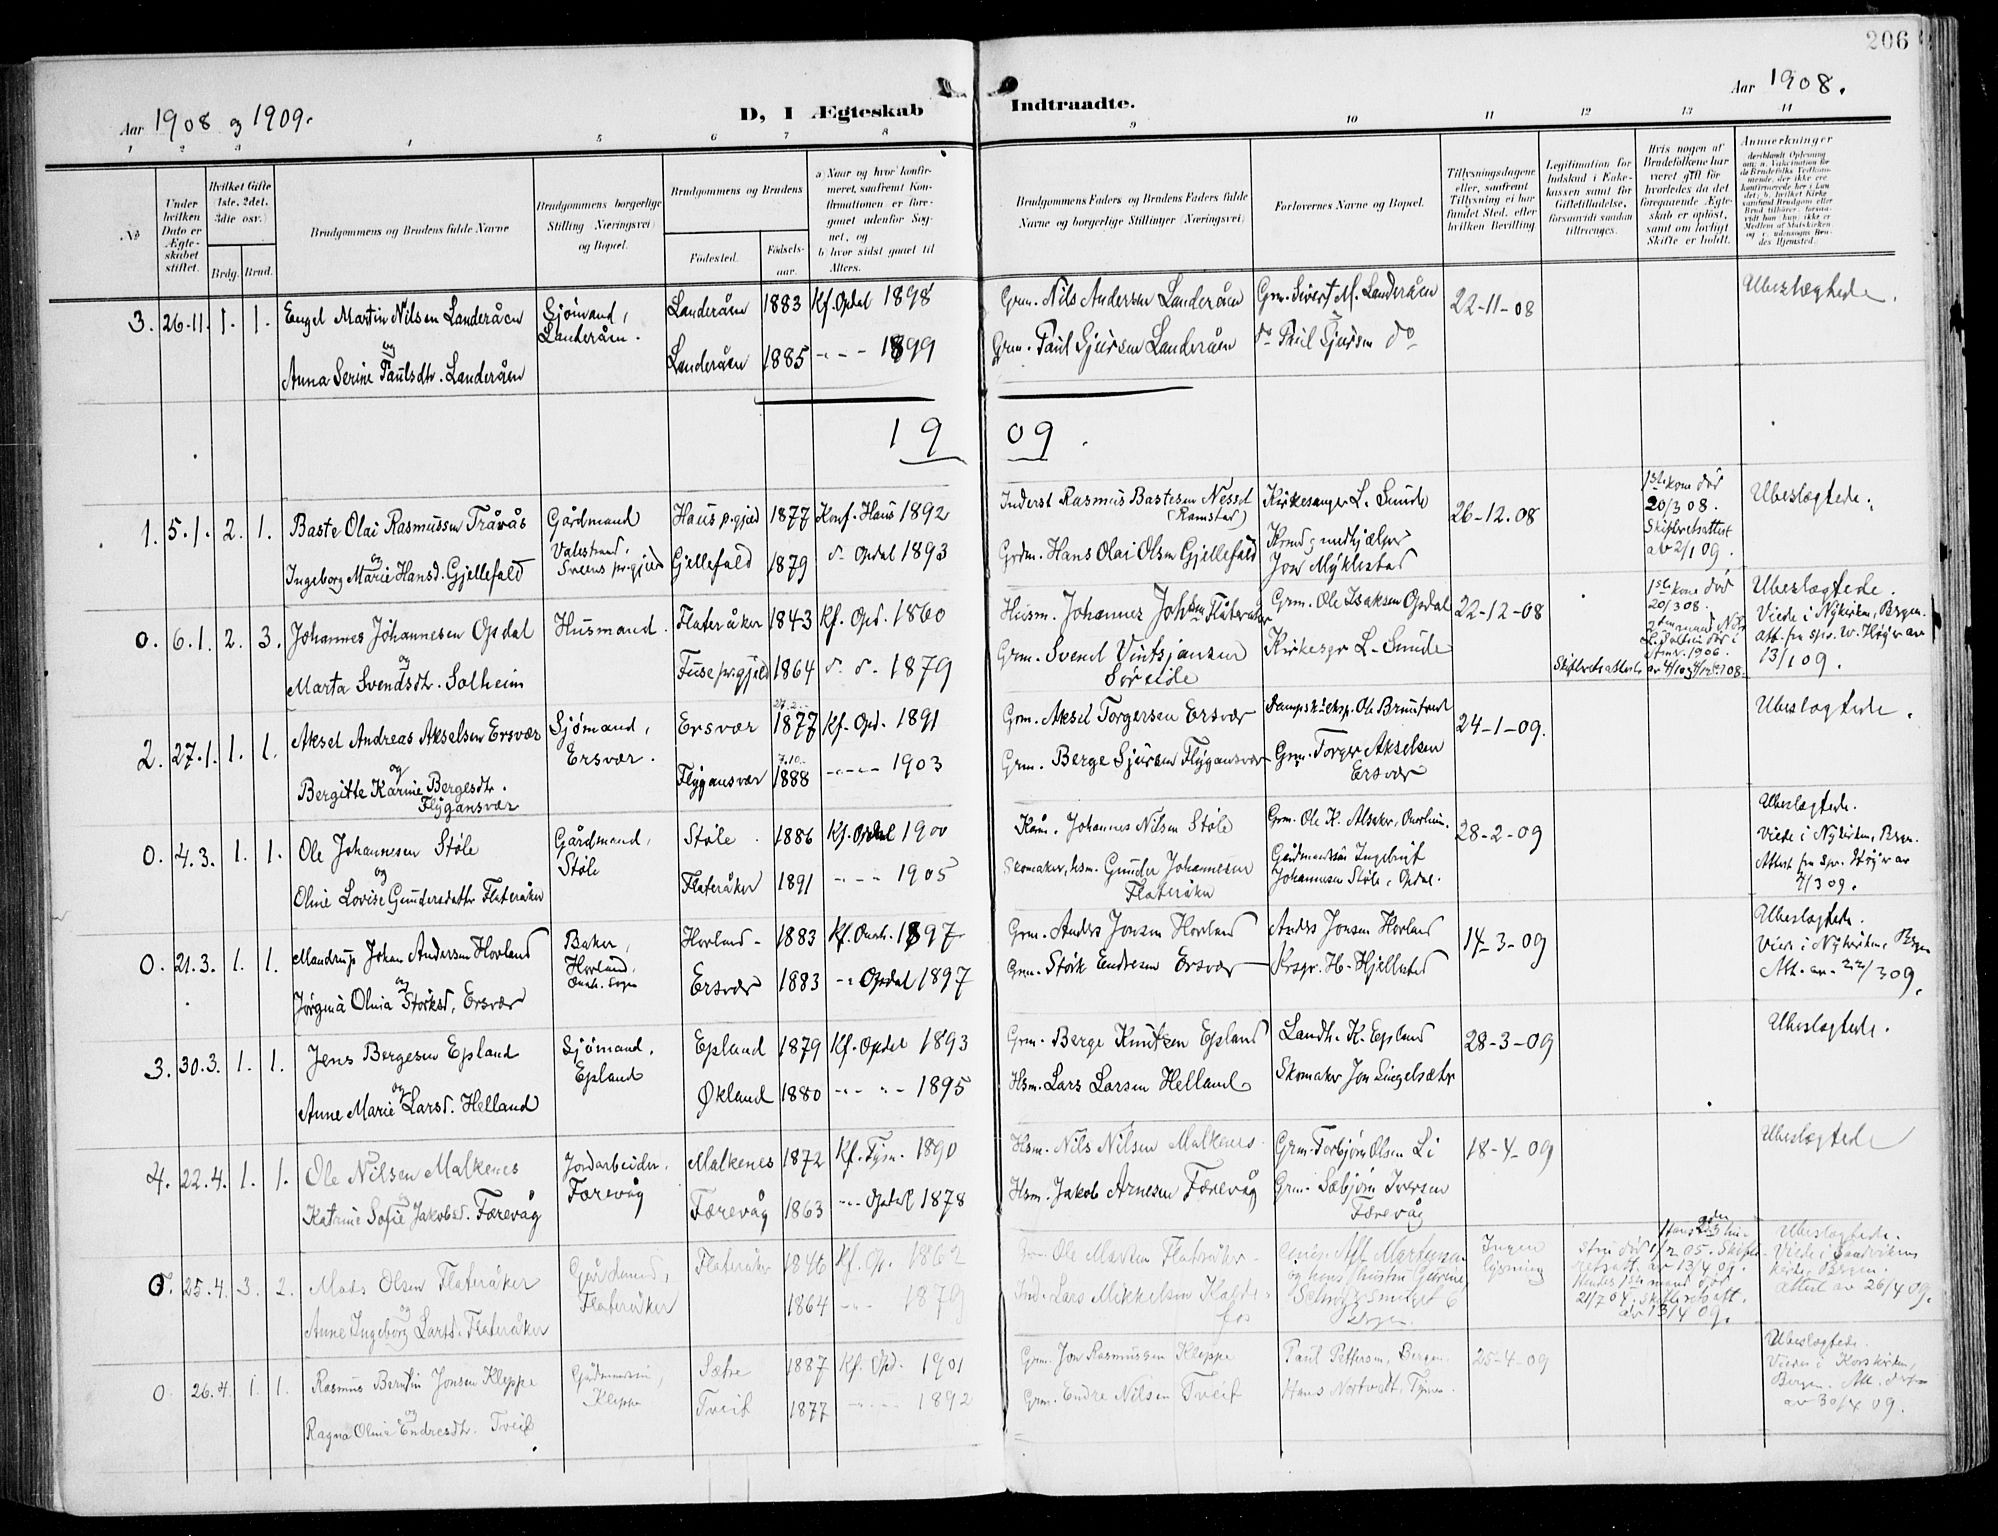 206
Aar 1908 og 1909.
D, I Ægteskab Indtraadte.
Aar 1908.
1 2 3 4 5 6 7 8 9 10 11 12 13 14
No
Under hvilken Dato er Ægteskabet stiftet.
Hvilket Gifte (1ste, 2det, 3die osv.)
Brdg. Brud.
Brudgommens og Brudens fulde Navne
Brudgommens borgerlige Stilling (Næringsvei) og Bopæl.
Brudgommens og Brudens
Fødested. Fødselsaar.
a) Naar og hvor konfirmeret, saafremt Konfirmationen er foregaaet udenfor Sognet, og
b) hvor sidst gaaet til Alters.
Brudgommens Faders og Brudens Faders fulde Navne og borgerlige Stillinger (Næringsvei)
Forlovernes Navne og Bopæl.
Tillysningsdagene eller, saafremt Tillysning ei har fundet Sted, efter hvilken Bevilling
Legitimation for Indskud i Enkekassen samt for Giftetilladelse, forsaavidt saadan tiltrænges.
Hvis nogen af Brudefolkene har været gift før hvorledes da det foregaaende Ægteskab er opløst, samt om lovligt Skifte er holdt.
Anmerkninger
3. 26-11. 1. 1. Engel Martin Nilsen Landeråen
og
Anna Serine Paulsdtr. Landeråen
Sjømand, Landeråen.
Landeråen 1883 Kf. Opdal 1898
Landeråen 1885 - - - 1899
Grm. Nils Andersen Landeråen
Grm. Paul Sjursen Landeråen
Grm. Sivert M. Landeråen
do Paul Sjursen do
22-11-08
Ubeslægtede.
1909.
1. 5.1. 2. 1. Baste Olai Rasmussen Tråvås
og
Ingeborg Marie Hansd. Gjellefald
Gårdmand
Valestrand, Sveens pr.gjeld
Haus pr.gjeld 1877 Konf. Haus 1892
Gjellefald 1879 d. Opdal 1893
Inderst Rasmus Bastesen Nesset
(Ramstad)
Grdm. Hans Olai Olsen Gjellefald
Kirkesanger L. Sunde
Jon Myklestad
26-12.08
1ste kone død
20/3 08.
Skifteretsattest
av 2/1 09.
Ubeslægtede.
0. 6.1. 2. 3. Johannes Johannesen Opdal
og
Marta Svendsdtr. Solheim
Husmand.
Flateråker 1843 Kf. Opd. 1860
Fuse pr.gjeld 1864 d. d. 1879
Husm. Johannes Johsen Flateråker
Grm. Svend Vintsjansen
Søreide
Grm. Ole Isaksen Opdal
Kirkesgr L. Sunde
22-12-08
Skifteretsattester
1ste kone død
20/3 08.
Ubeslægtede.
Viede i Nykirken, Bergen.
att. fra spr. W. Høyer av
13/1 09.
2. 27.1. 1. 1. Aksel Andreas Akselsen Ersvær
og
Bergitte Karine Bergesdtr.
Flygansvær
Sjømand,
Ersvær.
Ersvær 1877 Kf. Opd. 1891
Flygansvær 7.10. 1888 - - - 1903
Grm. Aksel Torgersen Ersvær
Grm. Berge Sjursen Flygansvær
Dampsk.eksp. Ole Bruntveit
Grm. Torger Akselsen
Ersvær
24-1-09.
Ubeslægtede.
0. 4.3. 1. 1. Ole Johannesen Støle
og
Oline Lovise Gundersdatter Flateråker
Gårdmand,
Støle
Støle. 1886 Kf. Opdal 1900
Flateråker 1891 - - - 1905
Kårm. Johannes Nilsen Støle
Skomaker, hsm. Gunder Johannesen
Flateråker
Grm. Ole K. Alsaker, Onarheim.
Gårdmandssøn Ingebrigt
Johannesen Støle, Opdal.
28-2-09
Ubeslægtede.
Viede i Nykirken, Bergen.
Attest fra spr. Høyer av
4/3 09.
0. 21.3. 1. 1. Mandrup Johan Andersen Hovland
og
Jørgina Olina Størksd. Ersvær
Baker,
Hovland,
Onarh. sogn
Hovland 1883 Kf. Onarh. 1897
Ersvær 1883 - Opdal 1897
Grm. Anders Jonsen Hovland
Grm. Størk Endresen Ersvær
Anders Jonsen Hovland
Krsgr. H. Hjellestad
14-3-09
Ubeslægtede.
Viede i Nykirken, Bergen
Att. av 22/3 09.
3. 30.3. 1. 1. Jens Bergesen Epland
og
Anne Marie Larsd. Helland
Sjømand,
Epland
Epland 1879 Kf. Opdal 1893
Økland 1880 - - - 1895
Grm. Berge Knutsen Epland
Hsm. Lars Larsen Helland
Landh. K. Epland
Skomaker Jon Lingelsæter
28-3-09
Ubeslægtede.
4. 22.4. 1. 1. Ole Nilsen Malkenes
og
Katrine Sofie Jakobsd. Færevåg
Jordarbeider,
Færevåg
Malkenes 1872 Kf. Tysn. 1890
Færevåg 1863 - Opdal 1878
Hsm. Nils Nilsen Malkenes
Hsm. Jakob Arnesen Færevåg
Grm. Torbjørn Olsen Li
Grm. Sæbjørn Iversen
Færevåg
18-4-09
Ubeslægtede
0. 25.4. 3. 2. Mads Olsen Flateråker
og
Anne Ingeborg Larsd. Flateråker
Gårdmand,
Flateråker
Flateråker 1846 Kf. Op. 1862
1864 - - 1879
Ole Madsen Flateråker
Ind. Lars Mikkelsen Kalde-
fos
og hans hustru
Bergen.
Ingen
lysning
1/2 05. Skifte-
retsatt. av 13/4 09.
Hendes 1ste mand død
21/7 04. Skifteretsatt.
av 13/4 09.
Ubeslægtede.
Viede i Sandvikens
kirke, Bergen.
attest av 26/4 09.
0. 26.4. 1. 1. Rasmus Berntin Jonsen Kleppe
og
Ragna Olina Endresdtr. Tveit
Gårdmandssøn,
Kleppe
Sætre 1887 Kf. Opd. 1901
Tveit 1877 - - - 1892
Grm. Jon Rasmussen Kleppe
Grm. Endre Nilsen Tveit
Paul Pettersen, Bergen.
Hans Nortvedt, Tysnes.
25-4-09
Ubeslægtede.
Viede i Korskirken,
Bergen. Att. derfra
av 30/4 09.